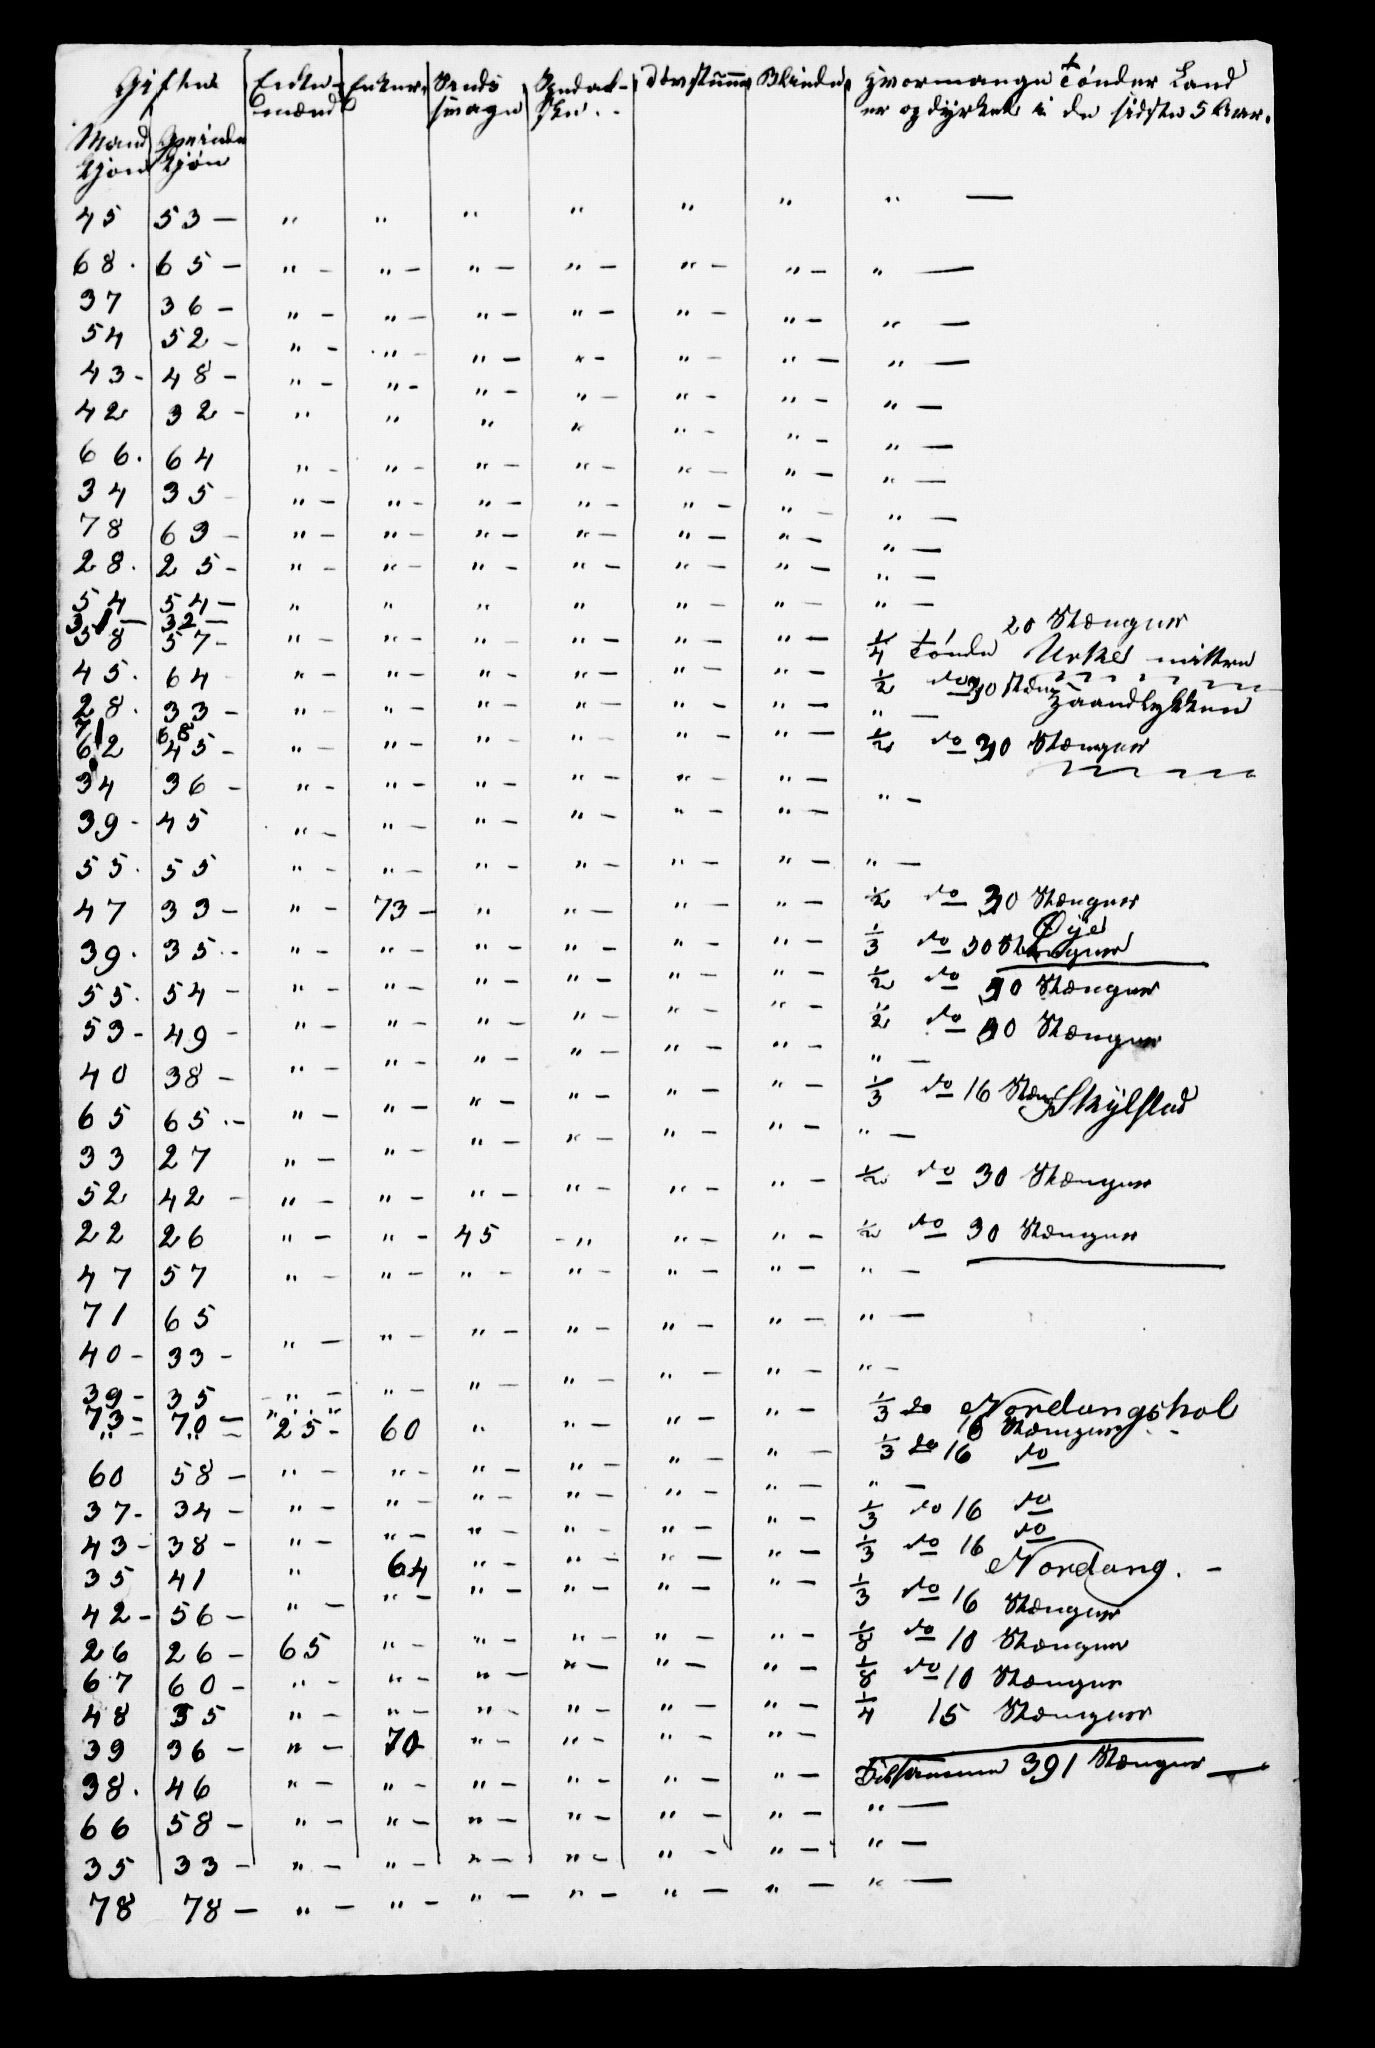 Gifte Enke- Enker. Sinds Spedal- Døvstumme Blinde Hvormange Tønder Land
mænd svage ske .. er opdyrket i de sidste 5 Aar.
Mand Qvinde
Kjøn Kjøn
45 53 — " " " " " " " —
68. 65 — " — " — " — " — " — " — " —
37 36 — " — " — " — " — " — " — " —
54 52 — " — " — " — " — " — " — " —
43 - 48 — " — " — " — " — " — " — " —
42 32 — " " " " " — " — " —
66. 64 " — " — " — " — " — " — " —
34 35 " — " — " — " — " — " — " —
78 69 — " — " — " — " — " — " — " —
28. 25 — " — " — " — " — " — " — " —
54 54 — " " " " " — " — " —
31 — 32 — 20 Stænger
58 57 — " — " — " — " — " — " — 1/4 Tønde Urke mittre
45. 64 " — " — " — " — " — " — 1/2 do 30 Stæn
28. 33 — " — " — " — " — " — " — " — Haandlykken
71 68
62 45 — " — " — " — " — " — " — 1/2 do 30 Stænger
34 36 — " — " — " — " — " — " — " —
39 - 45 " — " — " — " — " — " —
55. 55 " — " — " — " — " — " — " —
47 33 — " — 73 — " " — " — " — 1/2 do 30 Stænger
Øje
39. 35 .. " — " — " — " — " — " — 1/3 do 30 Stænger
55. 54 — " — " — " — " — " — " — 1/2 do 30 Stænger
53 - 49 — " — " — " — " — " — " — 1/2 do 30 Stænger
40 38 — " — " — " — " — " — " — " —
65 65 .- " — " — " — " — " — " — 1/3 do 16 Stæn Skylstad
33 27 " — " — " — " — " — " — " —
52 42 — " — " — " — " — " — " — 1/2 do 30 Stænger
22 26 " — " — 45 - " " — " — 1/2 do 30 Stænger
47 57 " — " — " — " — " — " — " —
71 65 " — " — " — " — " — " — " —
40 - 33 — " — " — " — " — " — " — " —
39 - 35 - " —
73 - 70 — 25 - 60 " " — " — " — 1/3 do Nordangshol
16 Stænger
60 58 — " — " — " — " — " — " — 1/3 do 16 do
37 - 34 — " — " — " — " — " — " — " —
1/3 do 16 do
43 - 38 — " — " — " — " — " — " — 1/3 do 16 do
35 41 " 64 " — " — " — " — Nordang. -
42 - 56 — " — " — " — " — " — " — 1/3 do 16 Stænger
26 26 — 65 " — " — " — " — " — 1/8 do 10 Stænger
67 60 — " — " — " — " — " — " — 1/8 do 10 Stænger
48 35 " — " — " — " — " — " — 1/4 15 Stænger
39 36 — " — 70 " — " — " — " —
38. 46 " — " — " — " — " — " — Tilsammen 391 Stænger —
66 58 — " — " — " — " — " — " — " —
35 33 — " — " — " — " — " — " — " —
78 78 — " — " — " — " — " — " — " —